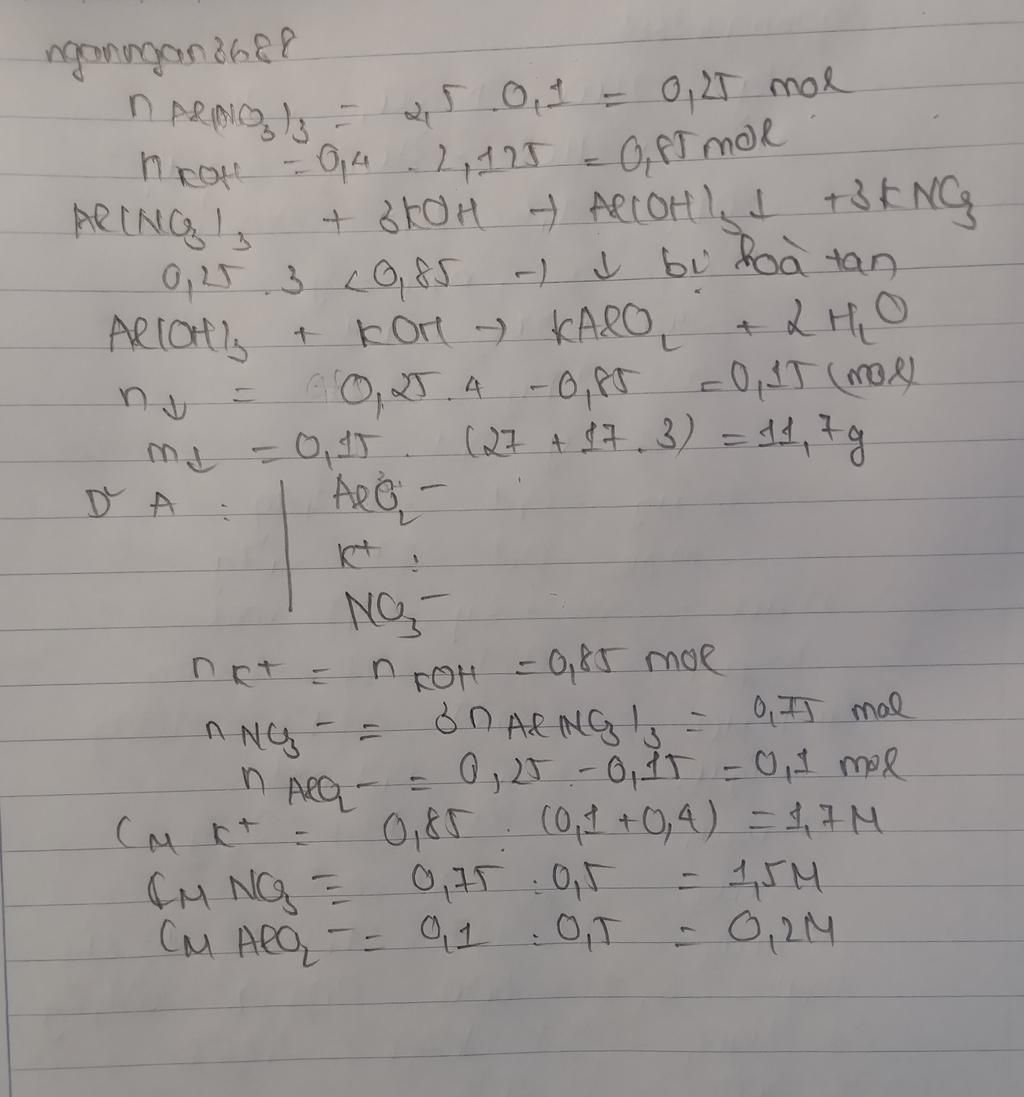 nganngan3688
n Al(NO3)3 = 2,5 . 0,1 = 0,25 mol
n KOH = 0,4 . 2,125 = 0,85 mol
Al(NO3)3 + 3KOH → Al(OH)3 ↓ + 3KNO3
0,25 . 3 < 0,85 → ↓ bị hoà tan
Al(OH)3 + KOH → KAlO2 + 2 H2O
n↓ = 0,25 . 4 - 0,85 = 0,15 (mol)
m↓ = 0,15 . (27 + 17 . 3) = 11,7g
D² A : AlO2 -
K+ :
NO3 -
n K+ = n KOH = 0,85 mol
n NO3 - = 3 n AlNO3)3 = 0,75 mol
n AlO2 - = 0,25 - 0,15 = 0,1 mol
CM K+ = 0,85 . (0,1 + 0,4) = 1,7M
CM NO3 - = 0,75 : 0,5 = 1,5M
CM AlO2 - = 0,1 : 0,5 = 0,2M